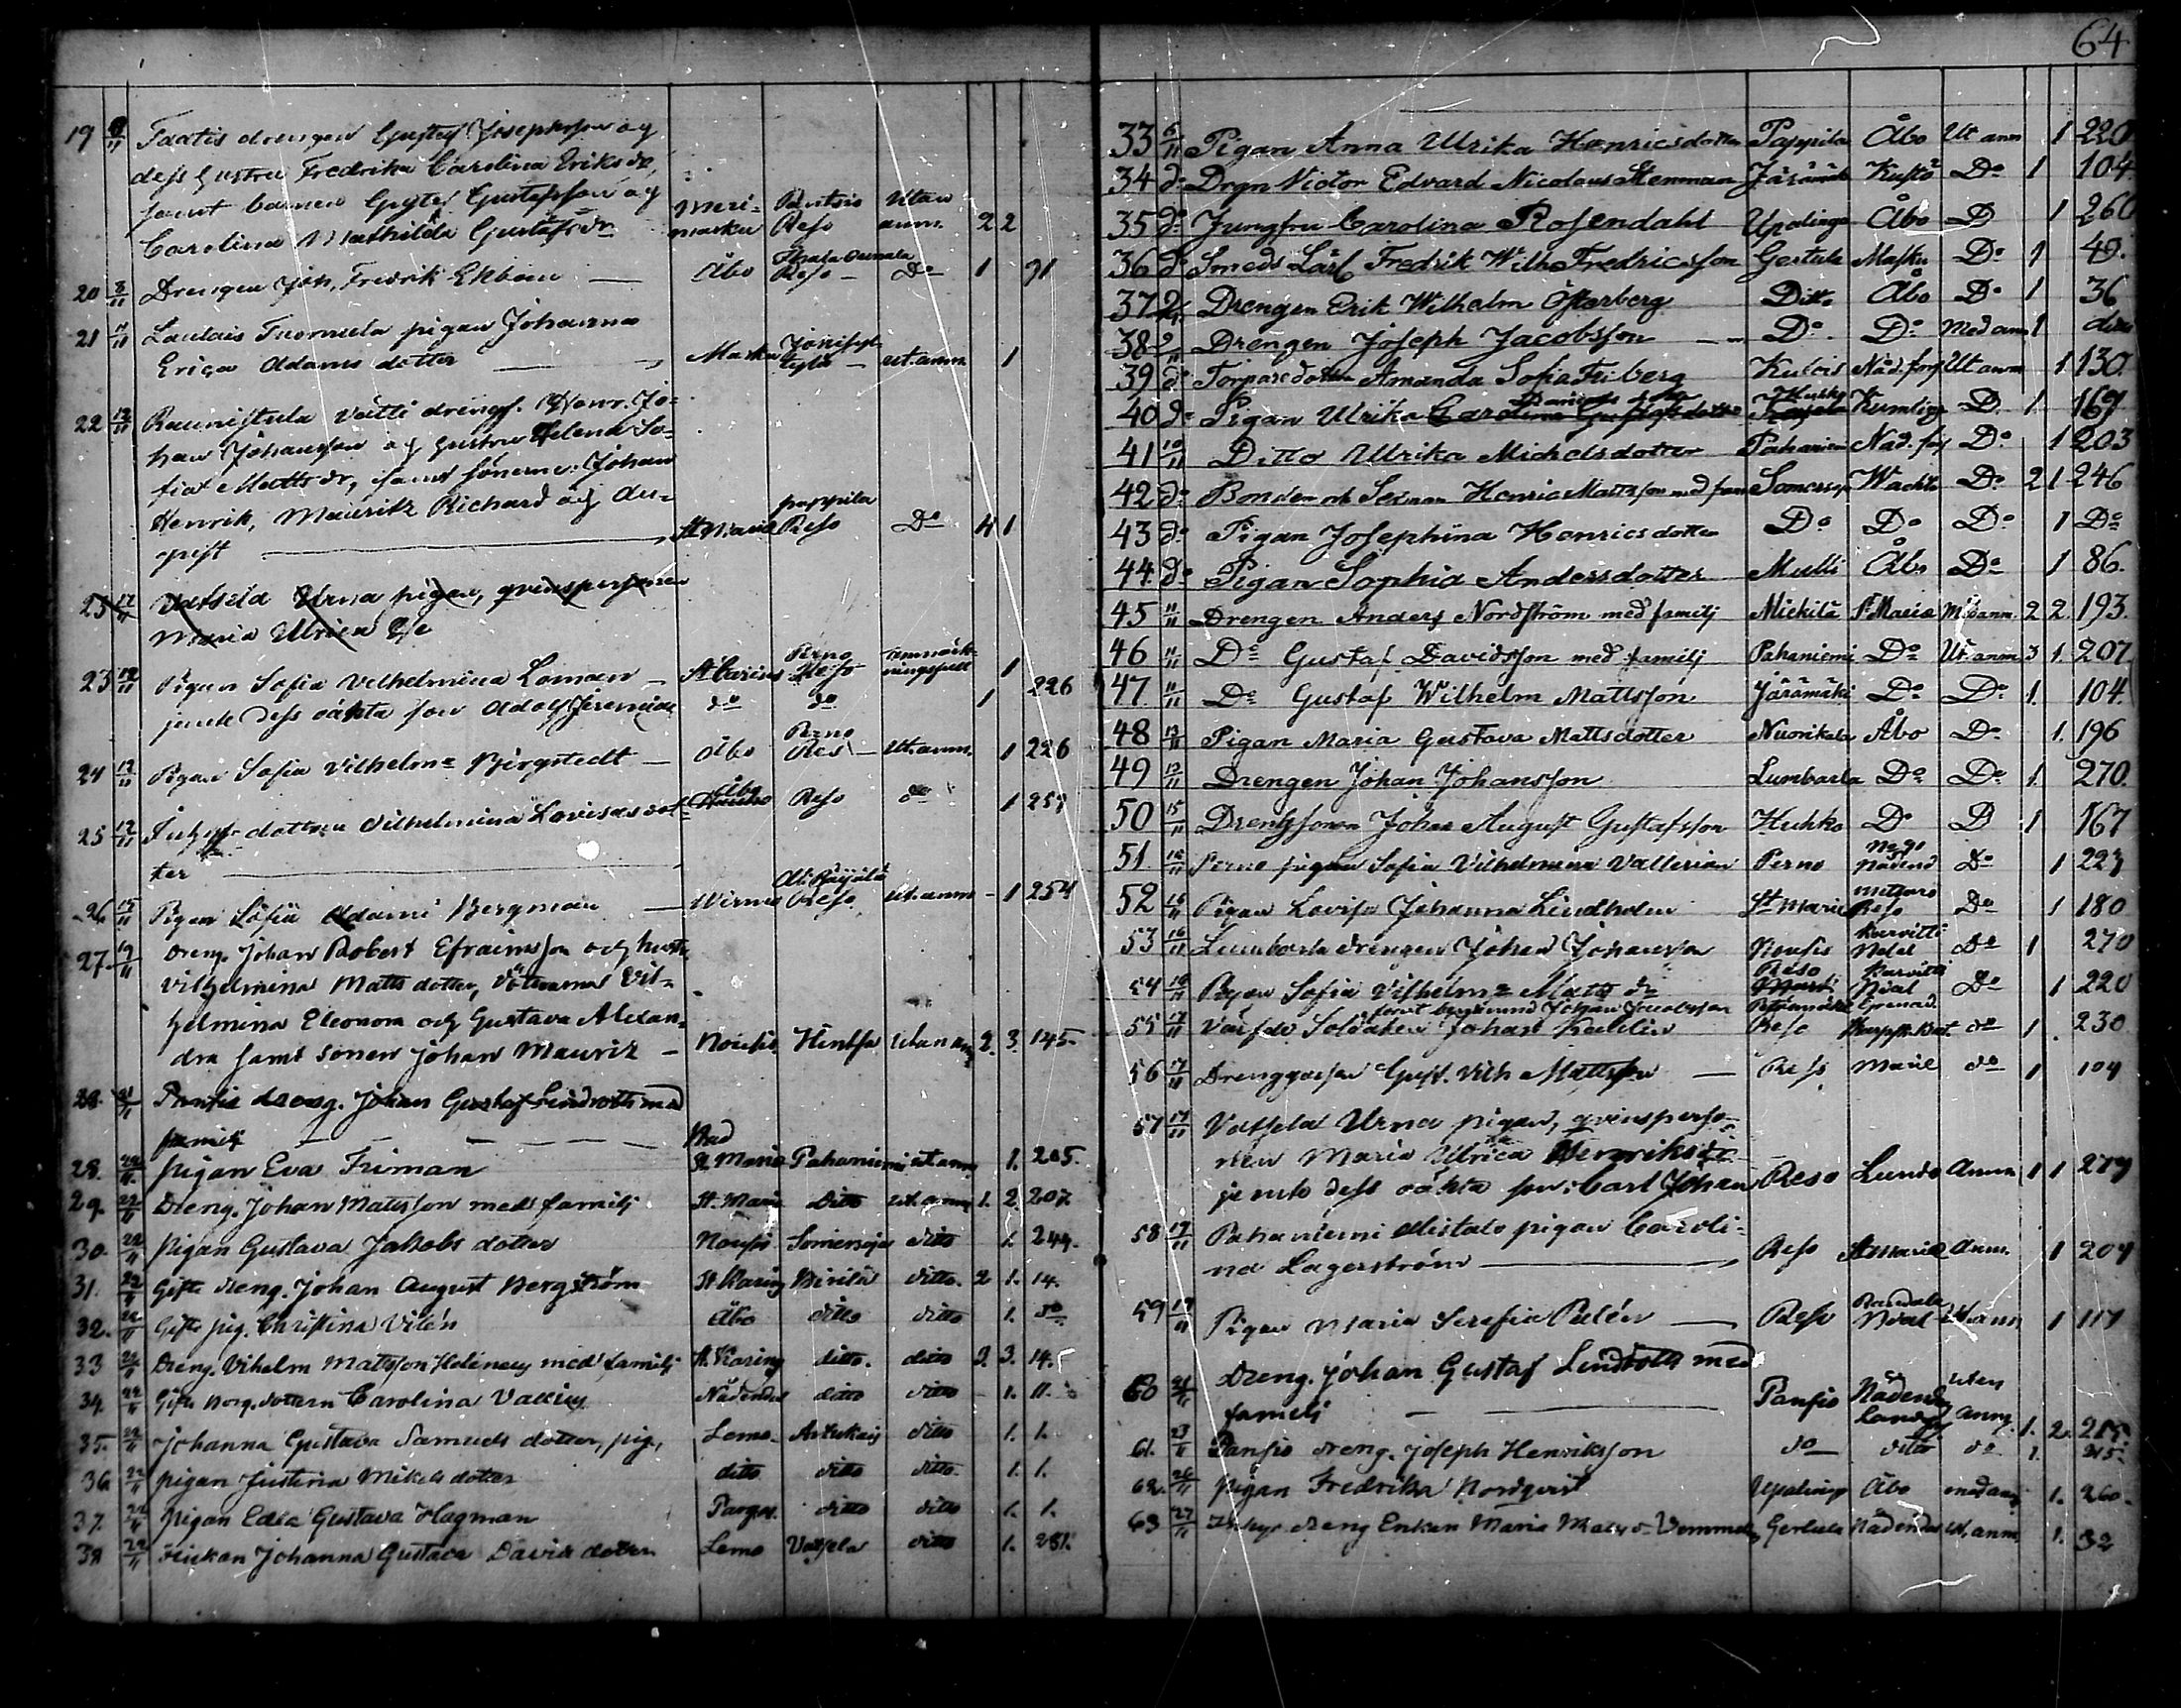 64
19 8/11 drengen Gustaf Josephsson og
dess hustru Fredrika Carolina Eriksdr,
samt barnen Gustaf Gustafsson og
Carolina Mathilda Gustafsdr Meri-masku Pansio Reso Utan anm. 2 2
20 8/11 Drengen Joh. Fredrik Ekbom Åbo Reso Do 1 91
21 11/11 Laulais Tuomela pigan Johanna
Erica Adams dotter Masku ut. anm 1
22 12/11 Raunistula Vätti drengs. Henr. Jo-
han Johansson og hustru Helena So-
fia Matts dr, samt sönerne: Johan
Henrik, Mauritz Richard og Au-
gust St Marie pappila Reso Do 4 1
23 17/11 Vatsela Urna pigan, qvinspersonen
Maria Ulrica
23 12/11 Pigan Sofia Vilhelmina Loman St Carins Perno Reso 1
jemte dess oäkta son Adolf Jeremias do do 1 226
24 12/11 Pigan Sofia Vilhelma Björgstedt Åbo Perno Res ut. anm. 1 226
25 12/11 dottren Vilhelmina Lovisas dot- Åbo Reso do 1 251
ter
26 15/11 Pigan Sofia Adami Bergman Wirmo Reso ut. anm 1 254
27 19/11 Dreng. Johan Robert Efraimsson och hustr
Vilhelmina Matts dotter, Vil-
helmina Eleonora och Gustava Alexan-
dra samt sonen Johan Mauritz Nousis Hintsa Utan anm 2. 3. 145.
28. 21/11 Pansio dreng. Johan Gustaf Lindroth med
familj
28. 22/11 pigan Eva Friman St. Marie Pahaniemi ut anm 1. 205.
29. 22/11 Dreng. Johan Mattsson med familj St. Marie Ditto ut. anm 1. 2. 207.
30. 22/11 pigan Gustava Jakobs dotter Nousis Somersoja ditto 1. 244.
31. 22/11 Gifte dreng. Johan August Bergström St Karins ditto. 2 1. 14.
32. 22/11 Gifte pig. Christina Vilén Åbo ditto ditto 1. do
33 22/11 Dreng. Vilhelm Mattsson med familj St. Karins ditto. ditto 3. 3. 14.
34. 22/11 Gifte dottern Carolina Vallius Nådendal ditto ditto 1. 11.
35. 22/11 Johanna Gustava Samuels dotter, pig, Lemo Artukais ditto 1. 1.
36 22/11 pigan Justina Mikels dotter ditto ditto ditto. 1. 1.
37. 22/11 pigan Edla Gustava Hagman Pargas. ditto ditto 1. 1.
38 22/11 flickan Johanna Gustava Davids dotter Lemo Vatsela ditto 1. 281.
33 6/11 Pigan Anna Ulrika Henricsdotter Pappila Åbo Ut anm 1 220
34 do Drgn Victor Edvard Nicolaus Stenman Järämäki Kustö Do 1 104.
35 do Jungfru Carolina Rosendahl Upalinga Åbo D 1 260
36 do Smeds Lärl Fredrik Wilh Fredricsson Gertula Masku Do 1 40.
37 Drengen Erik Wilhelm Österberg Ditto Åbo Do 1 36
38 Drengen Joseph Jacobsson Do. Do Med anm 1
39 do Torpare dotter Amanda Sofia Friberg Kulois Nåd. förs Ut anm 1 130.
40 do Pigan Ulrika Carolina Gustafsdotter Huhko Kumlinge D. 1. 169
41 10/11 Ditto Ulrika Michelsdotter Pahaniemi Nåd. fös Do 1 203
42 do Bonden och Henric Mattsson med fam Somersoja Do 2 1 246
43 do Pigan Josephina Henricsdotter Do Do Do 1 Do
44. do Pigan Sophia Andersdotter Mulli Åbo Do 1 86.
45 11/11 Drengen Anders Nordström med familj Mickilä St Marie Med anm. 2 2. 193.
46 11/11 Do Gustaf Davidsson med familj Pahaniemi Do Ut. anm 3 1. 207
47 11/11 Do Gustaf Wilhelm Mattsson Järämäki Do Do 1. 104.
48 13/11 Pigan Maria Gustava Mattsdotter Nuorikala Åbo Do 1. 196
49 13/11 Drengen Johan Johansson Lumbarla Do Do 1. 270.
50 15/11 Drengsonen Johan August Gustafsson Huhko Do D 1 167
51 16/11 Perno pigan Sofia Vilhelmina Vallerian Perno Nådend Do 1 223
52 16/11 Pigan Lovisa Johanna Lindholm St Marie Reso Do 1 180
53 16/11 Lumbarla drengen Johan Johansson Nousis Nådal Do 1 270
54 16/11 Pigan Sofia Vilhelma Matts dr Reso Nåal Do 1 220
55 17/11 Värfde Soldaten Johan Kallin Reso do 1. 230
56 17/11 Drenggossen Gust. Vilh Mattsson Reso Marie do 1 104
57 17/11 Vatsela Urna pigan, qvinsperso-
nen Maria Ulrica Henriksdr
jemte dess oäkta son: Carl Johan Reso Lundo Anm 1 1 279
58 17/11 Pahaniemi Mistalo pigan Caroli-
na Lagerström Reso St Marie Anm. 1 204
59 19/11 Pigan Maria Serafia Palén Reso Nåal Ut anm 1 117
60 21/11 Dreng. Johan Gustaf Lindroth med
familj Pansio Nådendals landsf. utan anm. 1. 2. 215.
61. 23/11 Pansio dreng. Joseph Henriksson do ditto do 1. 215.
62. 26/11 pigan Fredrika Nordqvist Upalinga Åbo med anm 1. 260.
63 27/11 dreng Enkan Maria Matts dr Gertula Nådendal ut. anm 1. 32